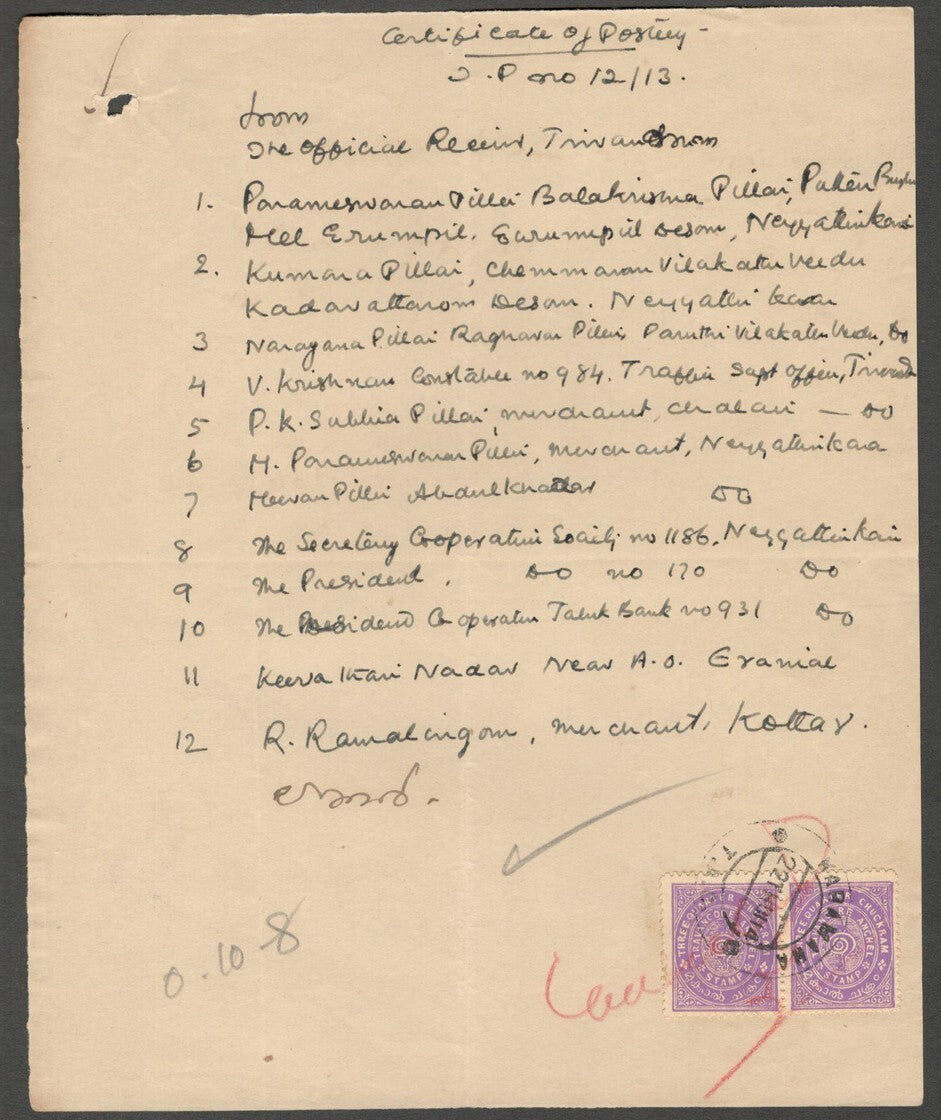 Certificate of Posting -
I. P no 12/13.
from
The Official Receiver, Trivandrum
1. Parameswaran Pillai Balakrishna Pillai, Putten
Mel Erumpil. Gurumpil Desom, Neyyattinkara
2. Kumara Pillai, Chemmaran Vilakathu Veedu
Kadavattarom Desom. Neyyattinkara
3 Narayana Pillai Raghavan Pillai, Paruthi Vilakathu Veedu, Do
4 V. Krishnan Constable no 984. Traffic Supt office, Trivand
5 P. K. Subbia Pillai, merchant, chalai — Do
6 M. Parameswaran Pillai, merchant, Neyyattinkara
7 Meeran Pillai Abdul Khadar Do
8 The Secretary Cooperative Society no 1186. Neyyattinkara
9 The President . Do no 170 Do
10 The President Co-operative Taluk Bank no 931 Do
11 Nadar Near A.O. Eranial
12 R. Ramalingom, merchant. Kottar.
0.10-8
THREE QUARTER CHUCKRAM
TRAVANCORE ANCHEL
STAMP
THREE QUARTER CHUCKRAM
ANCHEL
STAMP
മുക്കാൽ ചക്രം
മുക്കാൽ ചക്രം
KARAMANA